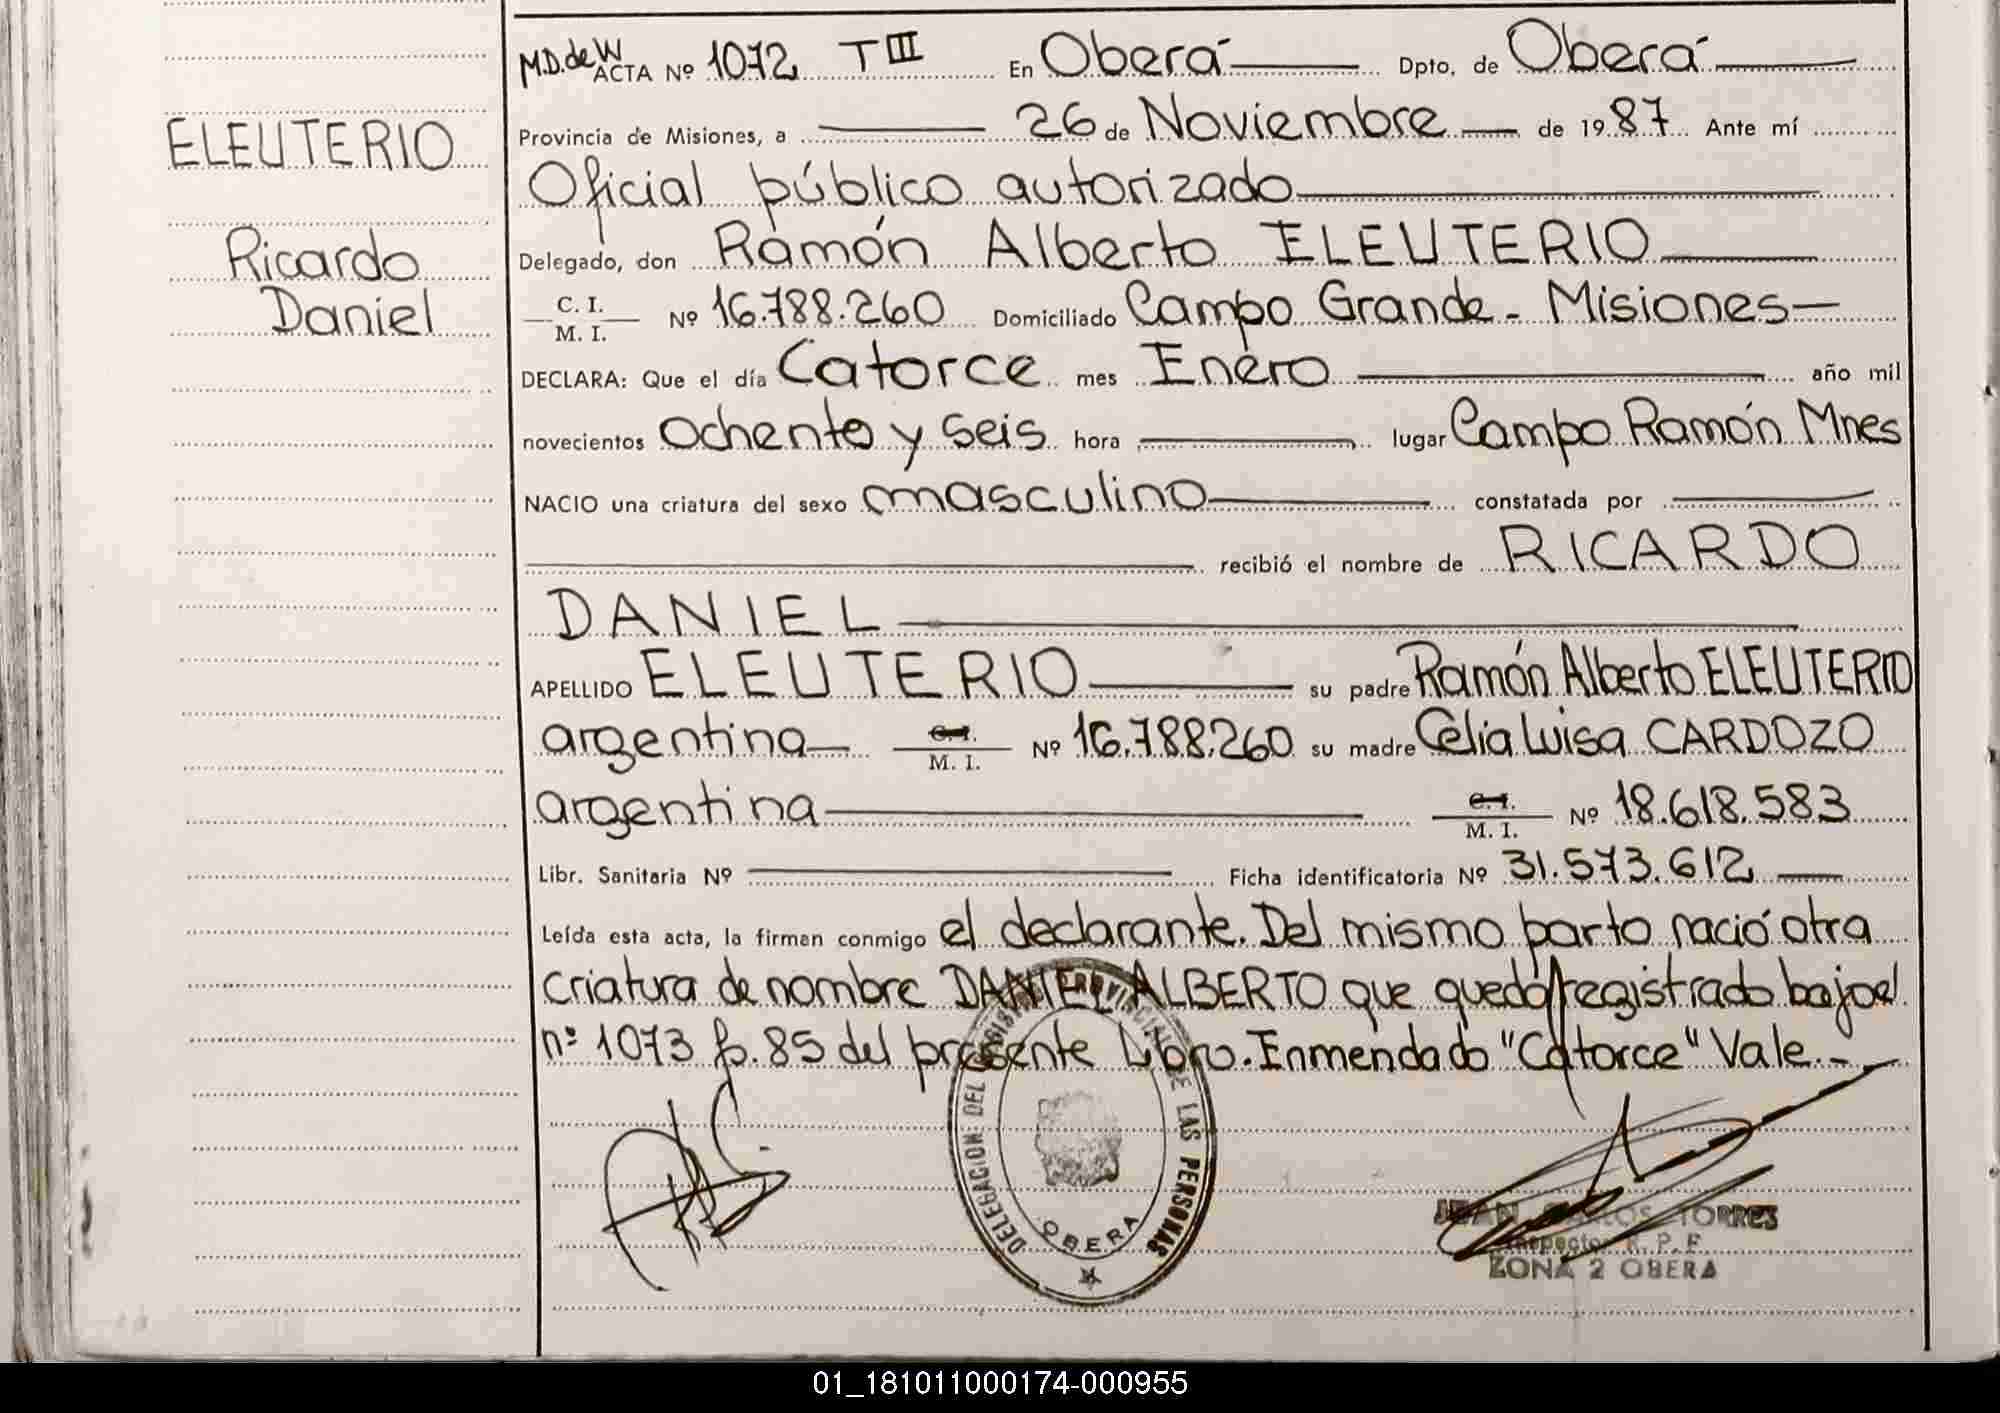 M.D. de W
ACTA Nº 1072 T III En Oberá Dpto. de Oberá
Provincia de Misiones, a 26 de Noviembre de 1987 Ante mí
Oficial público autorizado
Delegado, don Ramón Alberto ELEUTERIO
C. I. M. I. Nº 16.788.260 Domiciliado Campo Grande - Misiones
DECLARA: Que el día Catorce mes Enero año mil
novecientos Ochenta y seis hora lugar Campo Ramón Mnes
NACIO una criatura del sexo masculino constatada por
recibió el nombre de RICARDO
DANIEL
APELLIDO ELEUTERIO su padre Ramón Alberto ELEUTERIO
argentina C.I. M. I. Nº 16.788.260 su madre Celia Luisa CARDOZO
argentina C.I. M. I. Nº 18.618.583
Libr. Sanitaria Nº Ficha identificatoria Nº 31.573.612
Leída esta acta, la firman conmigo el declarante. Del mismo parto nació otra
criatura de nombre DANIEL ALBERTO que quedó registrado bajo el
nº 1073 fº. 85 del presente Libro. Enmendado "Catorce" Vale.-
ELEUTERIO
Ricardo
Daniel
DELEGACION DEL REGISTRO PROVINCIAL DE LAS PERSONAS
OBERA
JUAN CARLOS TORRES
Inspector R. P. P.
ZONA 2 OBERA
01_181011000174-000955